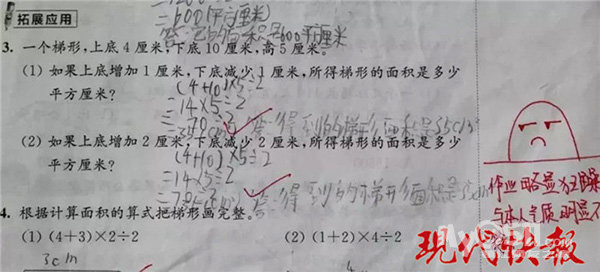 拓展应用
=600(平方厘米)
600平方厘米
3. 一个梯形,上底4厘米,下底10厘米,高5厘米。
(1) 如果上底增加1厘米,下底减少1厘米,所得梯形的面积是多少
平方厘米?
(4+10)×5÷2
=14×5÷2
=70÷2
答:得到的梯形面积是35
(2) 如果上底增加2厘米,下底减少2厘米,所得梯形的面积是多少
平方厘米?
(4+10)×5÷2
=14×5÷2
答:得到的梯形面积是
4. 根据计算面积的算式把梯形画完整。
(1) (4+3)×2÷2
(2) (1+2)×4÷2
3cm
作业略显
与本人气质明显不
现代快报